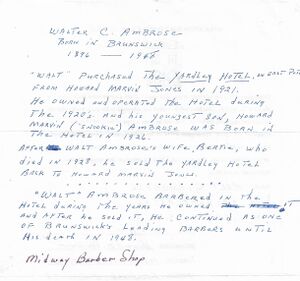 WALTER C. AMBROSE
BORN IN BRUNSWICK
1896 — 1948
"WALT" PURCHASED THE YARDLEY HOTEL, ON EAST POTOMAC
FROM HOWARD MARVIN JONES IN 1921.
HE OWNED AND OPERATED THE HOTEL DURING
THE 1920's AND HIS YOUNGEST SON, HOWARD
MARVIN ("SMOKIN") AMBROSE WAS BORN IN
THE HOTEL IN 1926.
AFTER WALT AMBROSE'S WIFE, BERTIE, WHO
DIED IN 1928, HE SOLD THE YARDLEY HOTEL
BACK TO HOWARD MARVIN JONES.
"WALT" AMBROSE BARBERED IN THE
HOTEL DURING THE YEARS HE OWNED IT
AND AFTER HE SOLD IT, HE CONTINUED AS ONE
OF BRUNSWICK'S LEADING BARBERS UNTIL
HIS DEATH IN 1948.
Midway Barber Shop